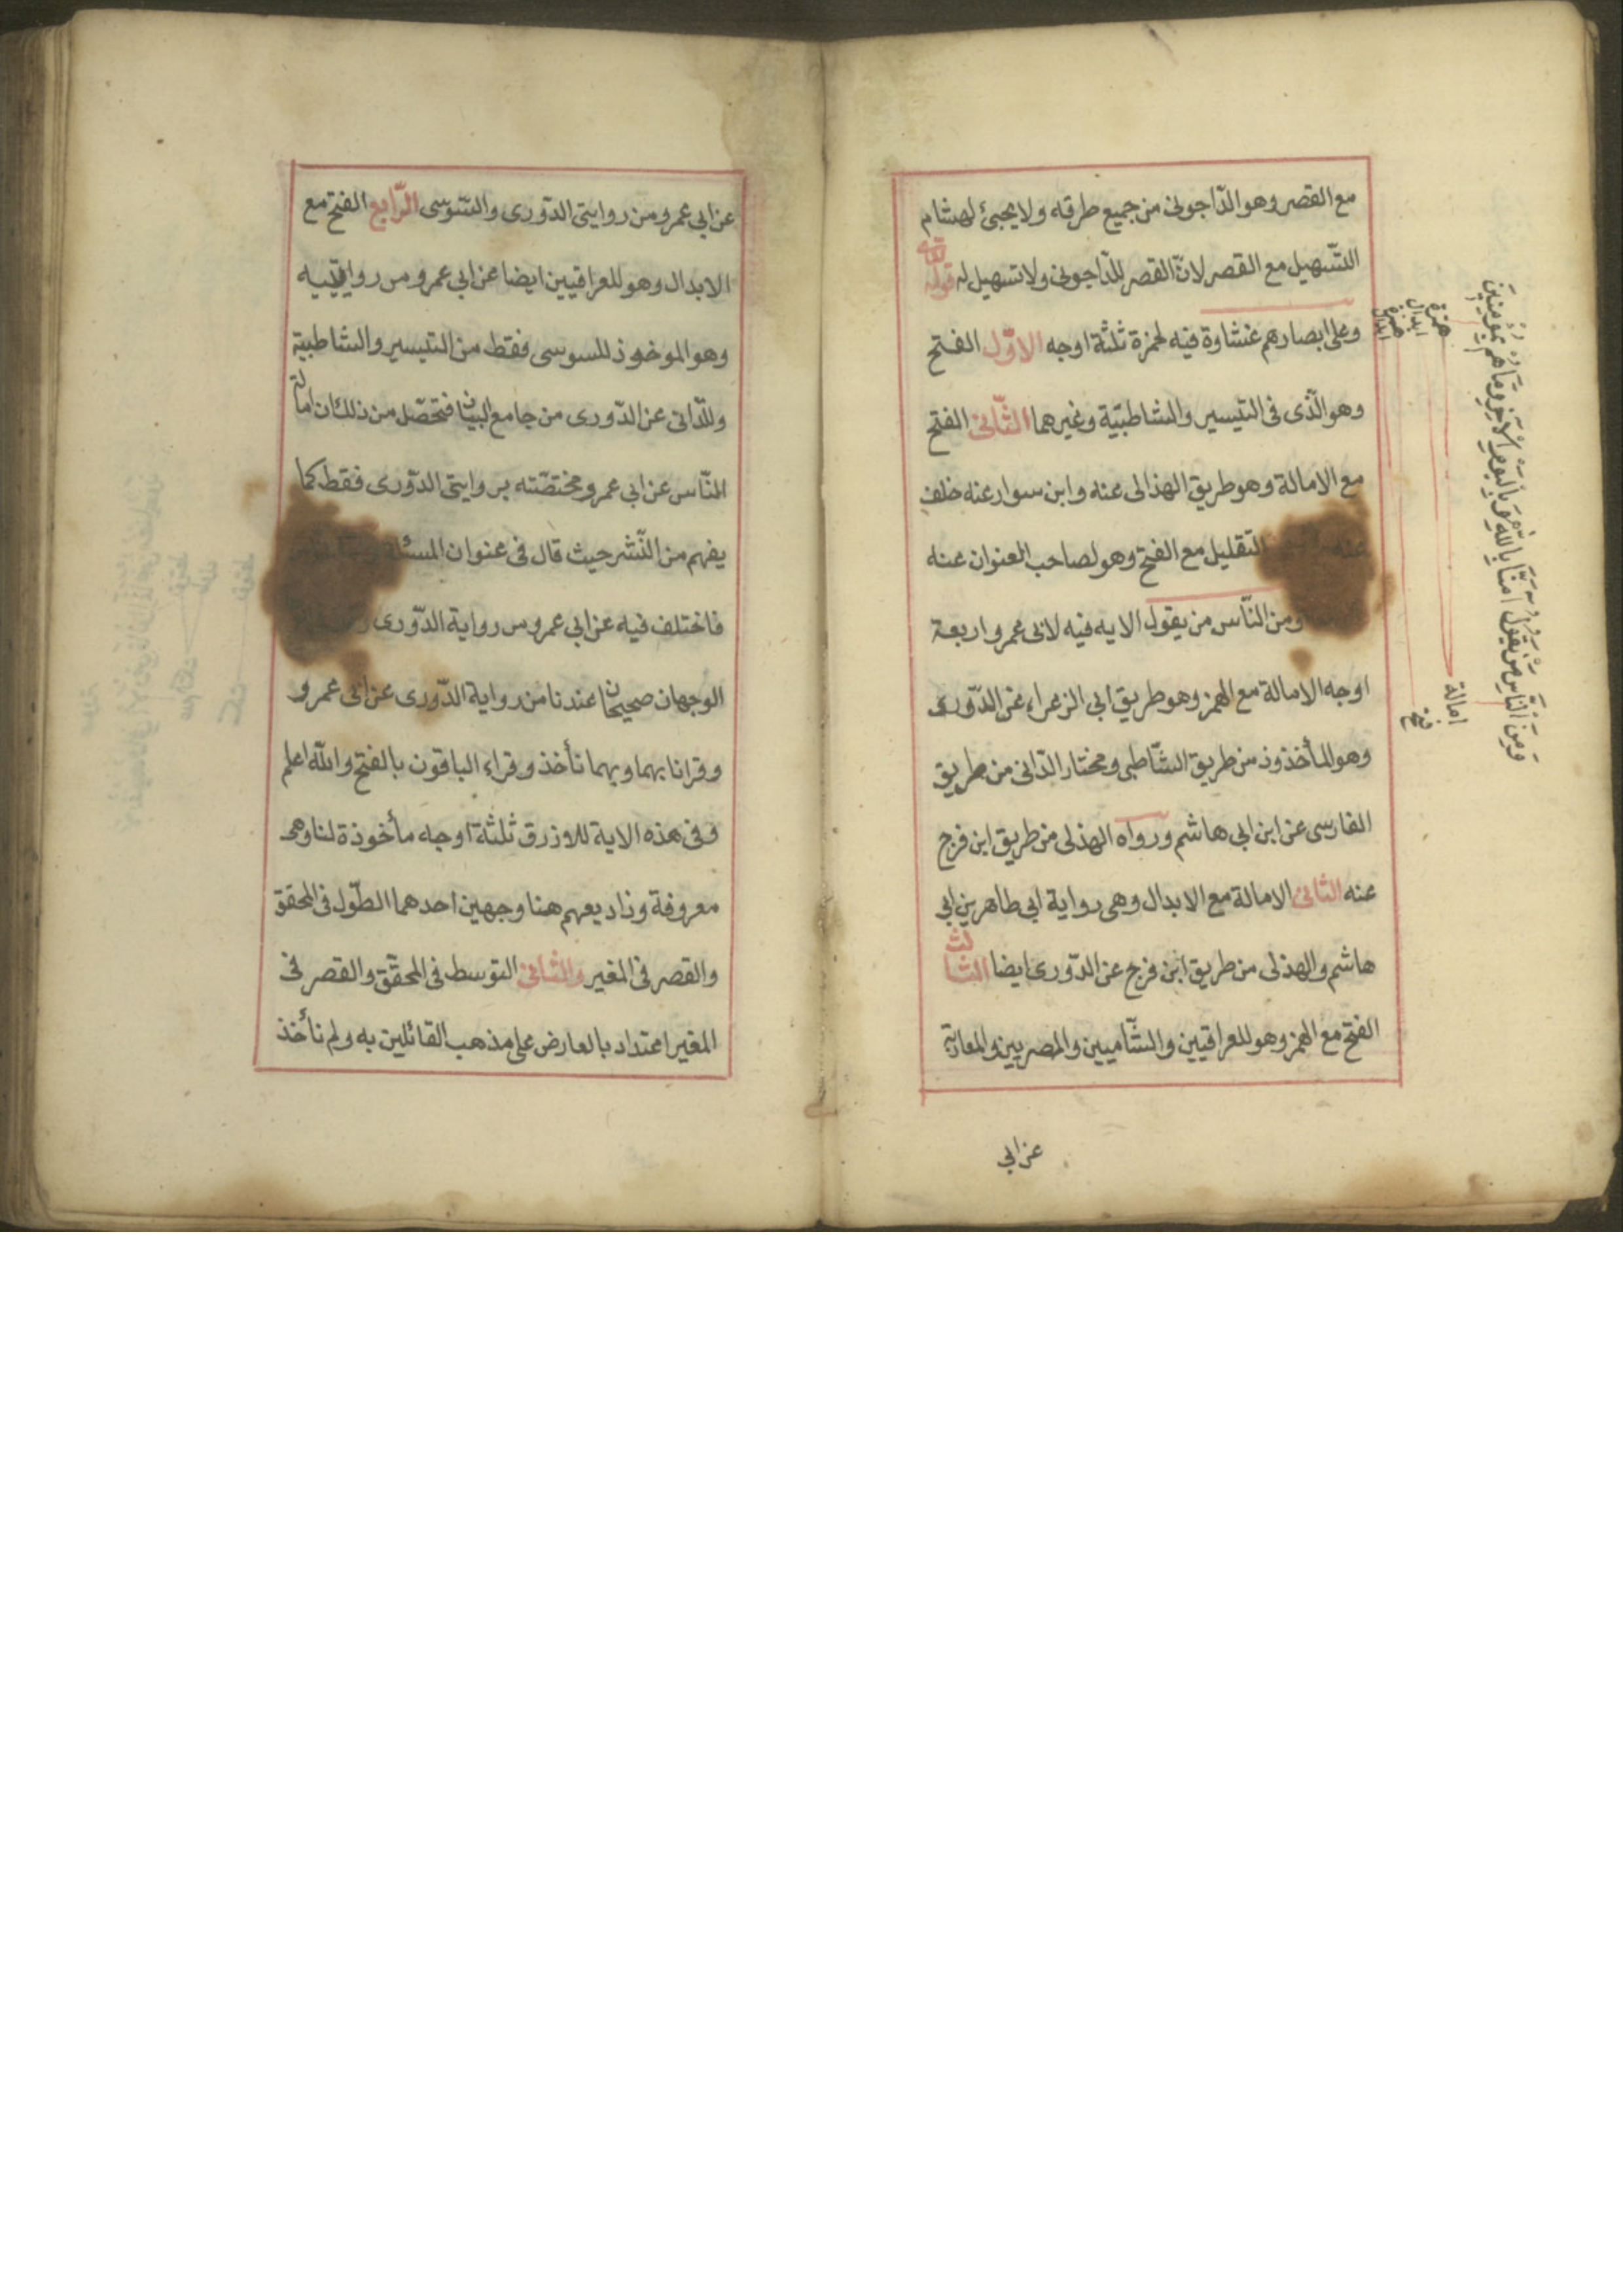 مع القصر وهو الدّاجونى من جميع طرقه ولا يجيئ لهشام
التّسهيل مع القصر لانّ القصر للدّاجونى ولا تسهيل له قوله تعالى
وعلى ابصارهم غشاوة فيه لحمزة ثلثة اوجه الاوّل الفتح
وهو الّذى فى التيسير والشاطبيّة وغيرهما الثّانى الفتح
مع الامالة وهو طريق الهذلى عنه وابن سوار عنه خلف
عنه التقليل مع الفتح وهو لصاحب العنوان عنه
ومن النّاس من يقول الايه فيه لابى عمرو اربعة
اوجه الامالة مع الهمز وهو طريق ابى الزعراء عن الدّورى
وهو المأخذوذ من طريق الشّاطبى ومختار الدّانى من طريق
الفارسى عن ابن ابى هاشم ورواه الهذلى من طريق ابن فرج
عنه الثانى الامالة مع الابدال وهى رواية ابى طاهر بن ابى
هاشم والهذلى من طريق ابن فرج عن الدّورى ايضا الثالث
الفتح مع الهمز وهو للعراقيين والشّاميين والمصريين والمغاربة
عن ابى
وَمِنَ النَّاسِ مَنْ يَقُولُ آمَنَّا بِاللهِ وَبِالْيَوْمِ الْآخِرِ وَمَا هُمْ بِمُؤْمِنِينَ
امالة
فتح
همزة
ابدال
همزة
ابدال
عن ابى عمرو ومن روايتى الدّورى والسّوسى الرّابع الفتح مع
الابدال وهو للعراقيين ايضا عن ابى عمرو ومن روايتيه
وهو الموخوذ للسوسى فقط من التيسير والشاطبية
وللدّانى عن الدّورى من جامع البيان فتحصّل من ذلك ان امالة
النّاس عن ابى عمرو مختصّته بروايتى الدّورى فقط كما
يفهم من النّشر حيث قال فى عنوان المسئلة
فاختلف فيه عن ابى عمرو من رواية الدّورى
الوجهان صحيحان عندنا من رواية الدّورى عن ابى عمرو
وقرانا بهما وبهما نأخذ وقراء الباقون بالفتح والله اعلم
وفى هذه الاية للازرق ثلثة اوجه مأخوذة لنا وهى
معروفة وزاد بعهم هنا وجهين احدهما الطّول فى المحقق
والقصر فى المغير والثانى التوسط فى المحقّق والقصر فى
المغير اعتداد بالعارض على مذهب القائلين به ولم نأخذ